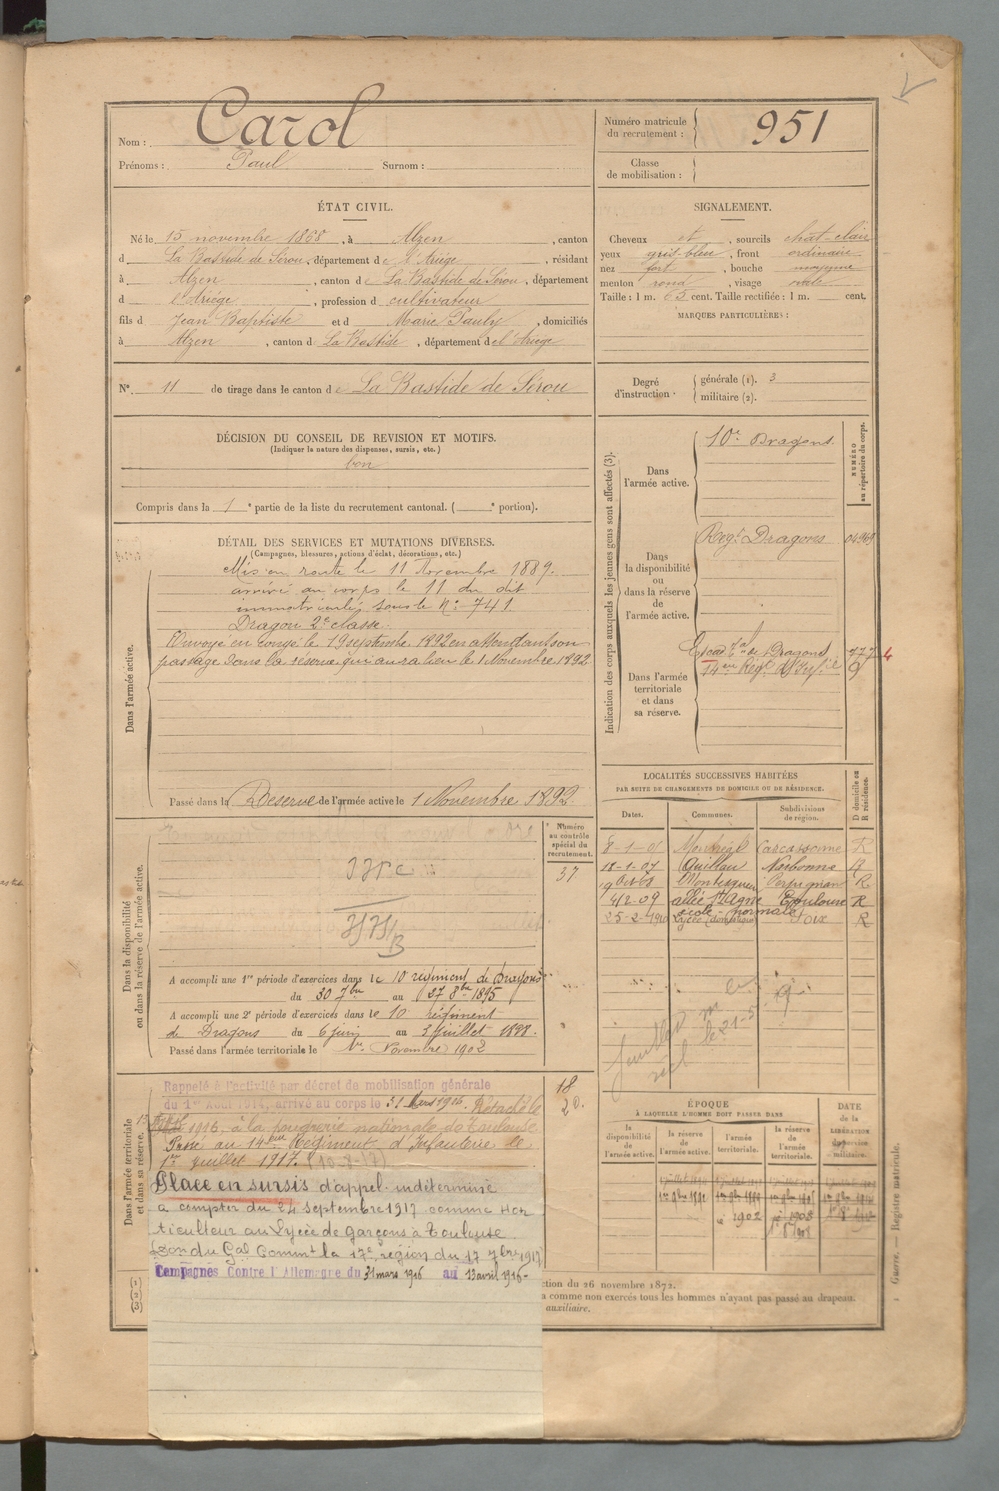 Nom : Carol
Prénoms : Paul Surnom :
Numéro matricule du recrutement : 951
Classe de mobilisation :
ÉTAT CIVIL.
Né le 15 novembre 1868, à Alzen, canton
d La Bastide de Sérou, département de l'Ariège, résidant
à Alzen, canton de La Bastide de Sérou, département
d l'Ariège, profession d cultivateur
fils d Jean Baptiste et d Marie Pauly, domiciliés
à Alzen, canton d La Bastide, département de l'Ariège
N° 11 de tirage dans le canton de La Bastide de Sérou
SIGNALEMENT.
Cheveux et, sourcils chat-clair
yeux gris-bleu, front ordinaire
nez fort, bouche moyenne
menton rond, visage ovale
Taille : 1 m. 63 cent. Taille rectifiée : 1 m. cent.
MARQUES PARTICULIÈRES :
Degré d'instruction : générale (1). 3
militaire (2).
DÉCISION DU CONSEIL DE REVISION ET MOTIFS.
(Indiquer la nature des dispenses, sursis, etc.)
bon
Compris dans la 1e partie de la liste du recrutement cantonal. ( e portion).
DÉTAIL DES SERVICES ET MUTATIONS DIVERSES.
(Campagnes, blessures, actions d'éclat, décorations, etc.)
Dans l'armée active.
Mis en route le 11 Novembre 1889.
arrivé au corps le 11 du dit
immatriculé sous le N° 741
Dragon 2e classe.
Envoyé en congé le 19 septembre 1892 en attendant son
passage dans la réserve qui aura lieu le 1 Novembre 1892
Passé dans la Réserve de l'armée active le 1 Novembre 1892
Indication des corps auxquels les jeunes gens sont affectés (3).
NUMÉRO au répertoire du corps.
Dans l'armée active.
10e Dragons.
Dans la disponibilité ou dans la réserve de l'armée active.
Regt Dragons
Dans l'armée territoriale et dans sa réserve.
de Dragons
14eme Regt d'Inf.
LOCALITÉS SUCCESSIVES HABITÉES
PAR SUITE DE CHANGEMENTS DE DOMICILE OU DE RÉSIDENCE.
Dates. Communes. Subdivisions de région. D domicile ou R résidence.
8-1-01 Montréal Carcassonne R
18-1-07 Quillan Narbonne R
Montesquieu Perpignan R
9/2-09 allée St Agne Toulouse R
école normale
25-2-1910 Lycée (domestique) Foix R
Dans la disponibilité ou dans la réserve de l'armée active.
Numéro au contrôle spécial du recrutement.
37
A accompli une 1re période d'exercices dans le 10 régiment de Dragons
du 30 7bre au 27 8bre 1895
A accompli une 2e période d'exercices dans le 10 régiment
de Dragons du 6 juin au 3 Juillet 1898.
Passé dans l'armée territoriale le 1er Novembre 1902
Dans l'armée territoriale et dans sa réserve.
18
20.
Rappelé à l'activité par décret de mobilisation générale
du 1er Août 1914, arrivé au corps le 31 Mars 1916. Détaché le
1916, à la poudrerie nationale de Toulouse
Passé au 14eme Régiment d'Infanterie le
1er juillet 1917. (10-8-17)
Placé en sursis d'appel indéterminé
à compter du 24 septembre 1917 comme Hor
ticulteur au Lycée de Garçons à Toulouse
du Gal Commt la 17e région du 17 7bre 1917
Campagnes Contre l'Allemagne du 31 mars 1916 au 13 avril 1916-
ÉPOQUE
À LAQUELLE L'HOMME DOIT PASSER DANS
la disponibilité de l'armée active. la réserve de l'armée active. l'armée territoriale. la réserve de l'armée territoriale.
DATE de la LIBÉRATION du service militaire.
1902 1908
(1)
(2)
(3)
ction du 26 novembre 1872.
a comme non exercés tous les hommes n'ayant pas passé au drapeau.
auxiliaire.
Guerre. — Registre matricule.